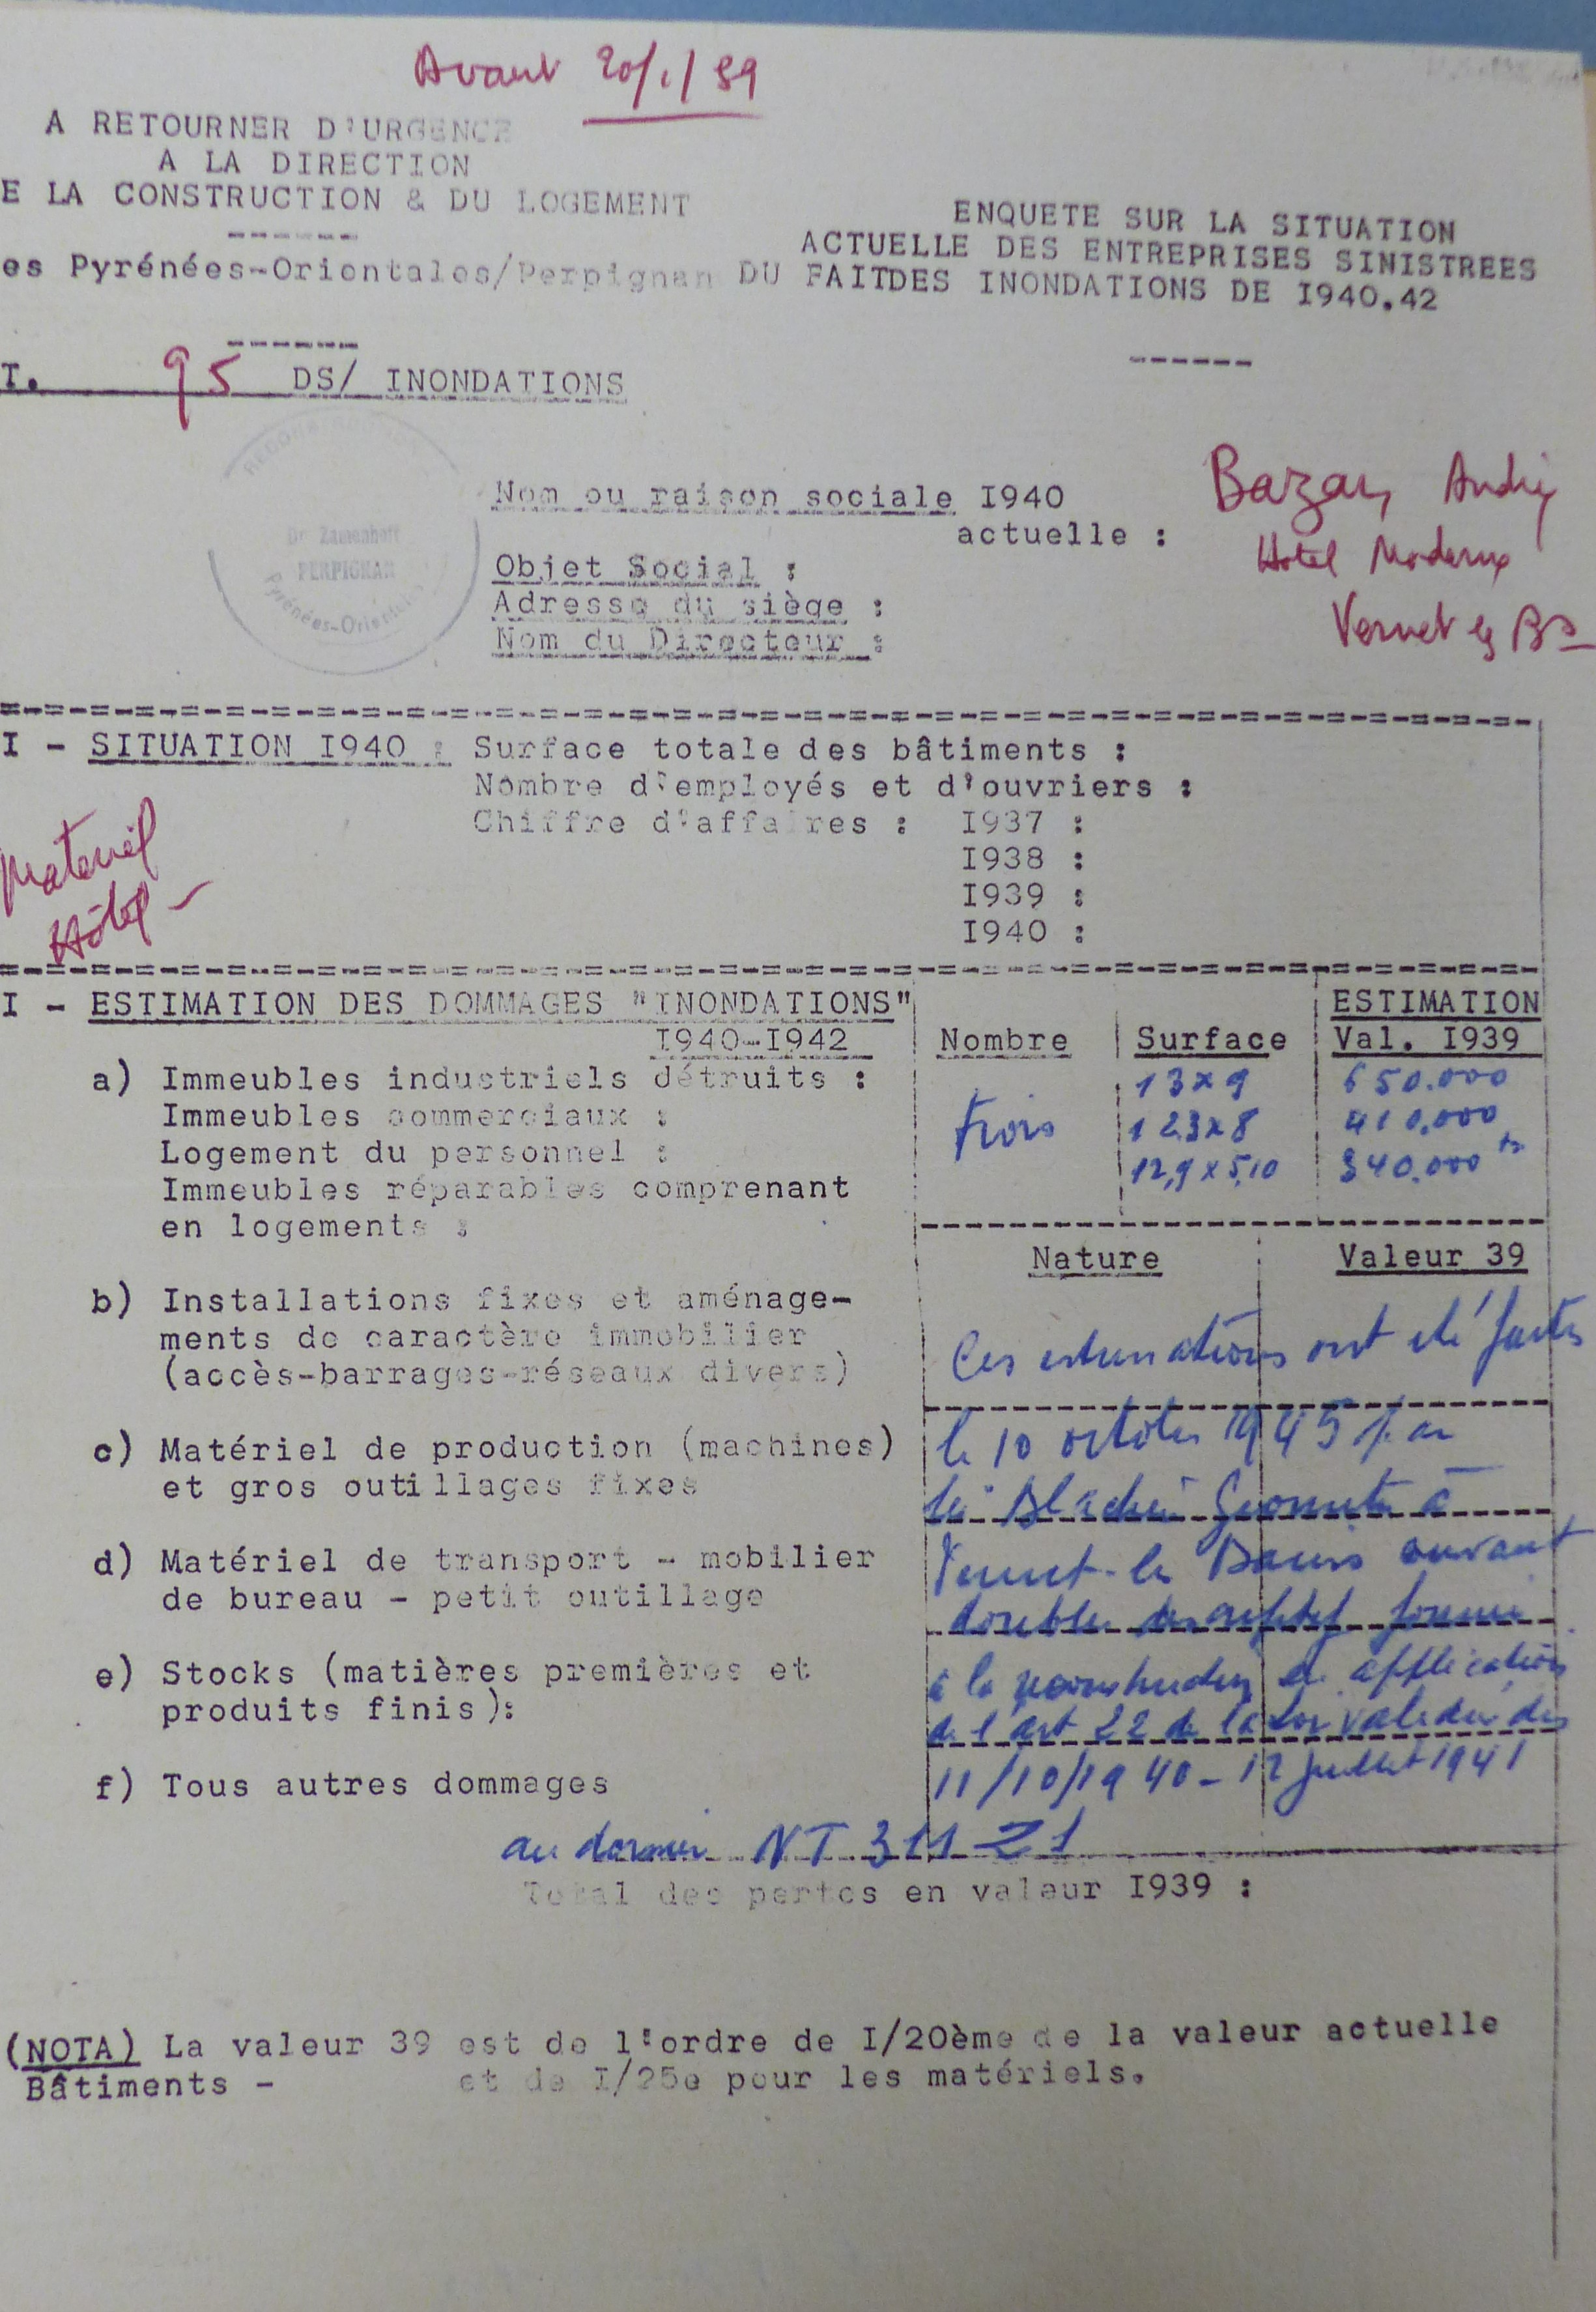 Avant 20/1/59
A RETOURNER D'URGENCE
A LA DIRECTION
E LA CONSTRUCTION & DU LOGEMENT
------
es Pyrénées-Orientales/Perpignan
ENQUETE SUR LA SITUATION
ACTUELLE DES ENTREPRISES SINISTREES
DU FAITDES INONDATIONS DE I940.42
------
------
T. 95 DS/ INONDATIONS
Dr Zamenhoff
PERPIGNAN
Pyrénées-Orientales
Nom ou raison sociale I940
actuelle :
Bazan, André
Hotel Moderne
Vernet les Bs
Objet Social :
Adresse du siège :
Nom du Directeur :
I - SITUATION I940 : Surface totale des bâtiments :
Nombre d'employés et d'ouvriers :
Chiffre d'affaires : I937 :
I938 :
I939 :
I940 :
Materiel
Hôtel -
I - ESTIMATION DES DOMMAGES "INONDATIONS"
I940-I942
Nombre | Surface | ESTIMATION
Val. I939
a) Immeubles industriels détruits : 13 x 9 650.000
Immeubles commerciaux : trois 123 x 8 410.000
Logement du personnel : 12,9 x 5,10 340.000
Immeubles réparables comprenant
en logements :
Nature Valeur 39
b) Installations fixes et aménage-
ments de caractère immobilier
(accès-barrages-réseaux divers)
Ces estimations ont été faites
c) Matériel de production (machines)
et gros outillages fixes
le 10 octobre 1945 par
Géometre à
d) Matériel de transport - mobilier
de bureau - petit outillage
Vernet-les Bains suivant
double descriptif fourni
e) Stocks (matières premières et
produits finis):
à la reconstruction en application
de l'art 22 de la Loi validée des
f) Tous autres dommages
11/10/1940 - 12 juillet 1941
au dossier NT 311 21
Total des pertes en valeur I939 :
(NOTA) La valeur 39 est de l'ordre de I/20ème de la valeur actuelle
Bâtiments - et de I/25e pour les matériels.